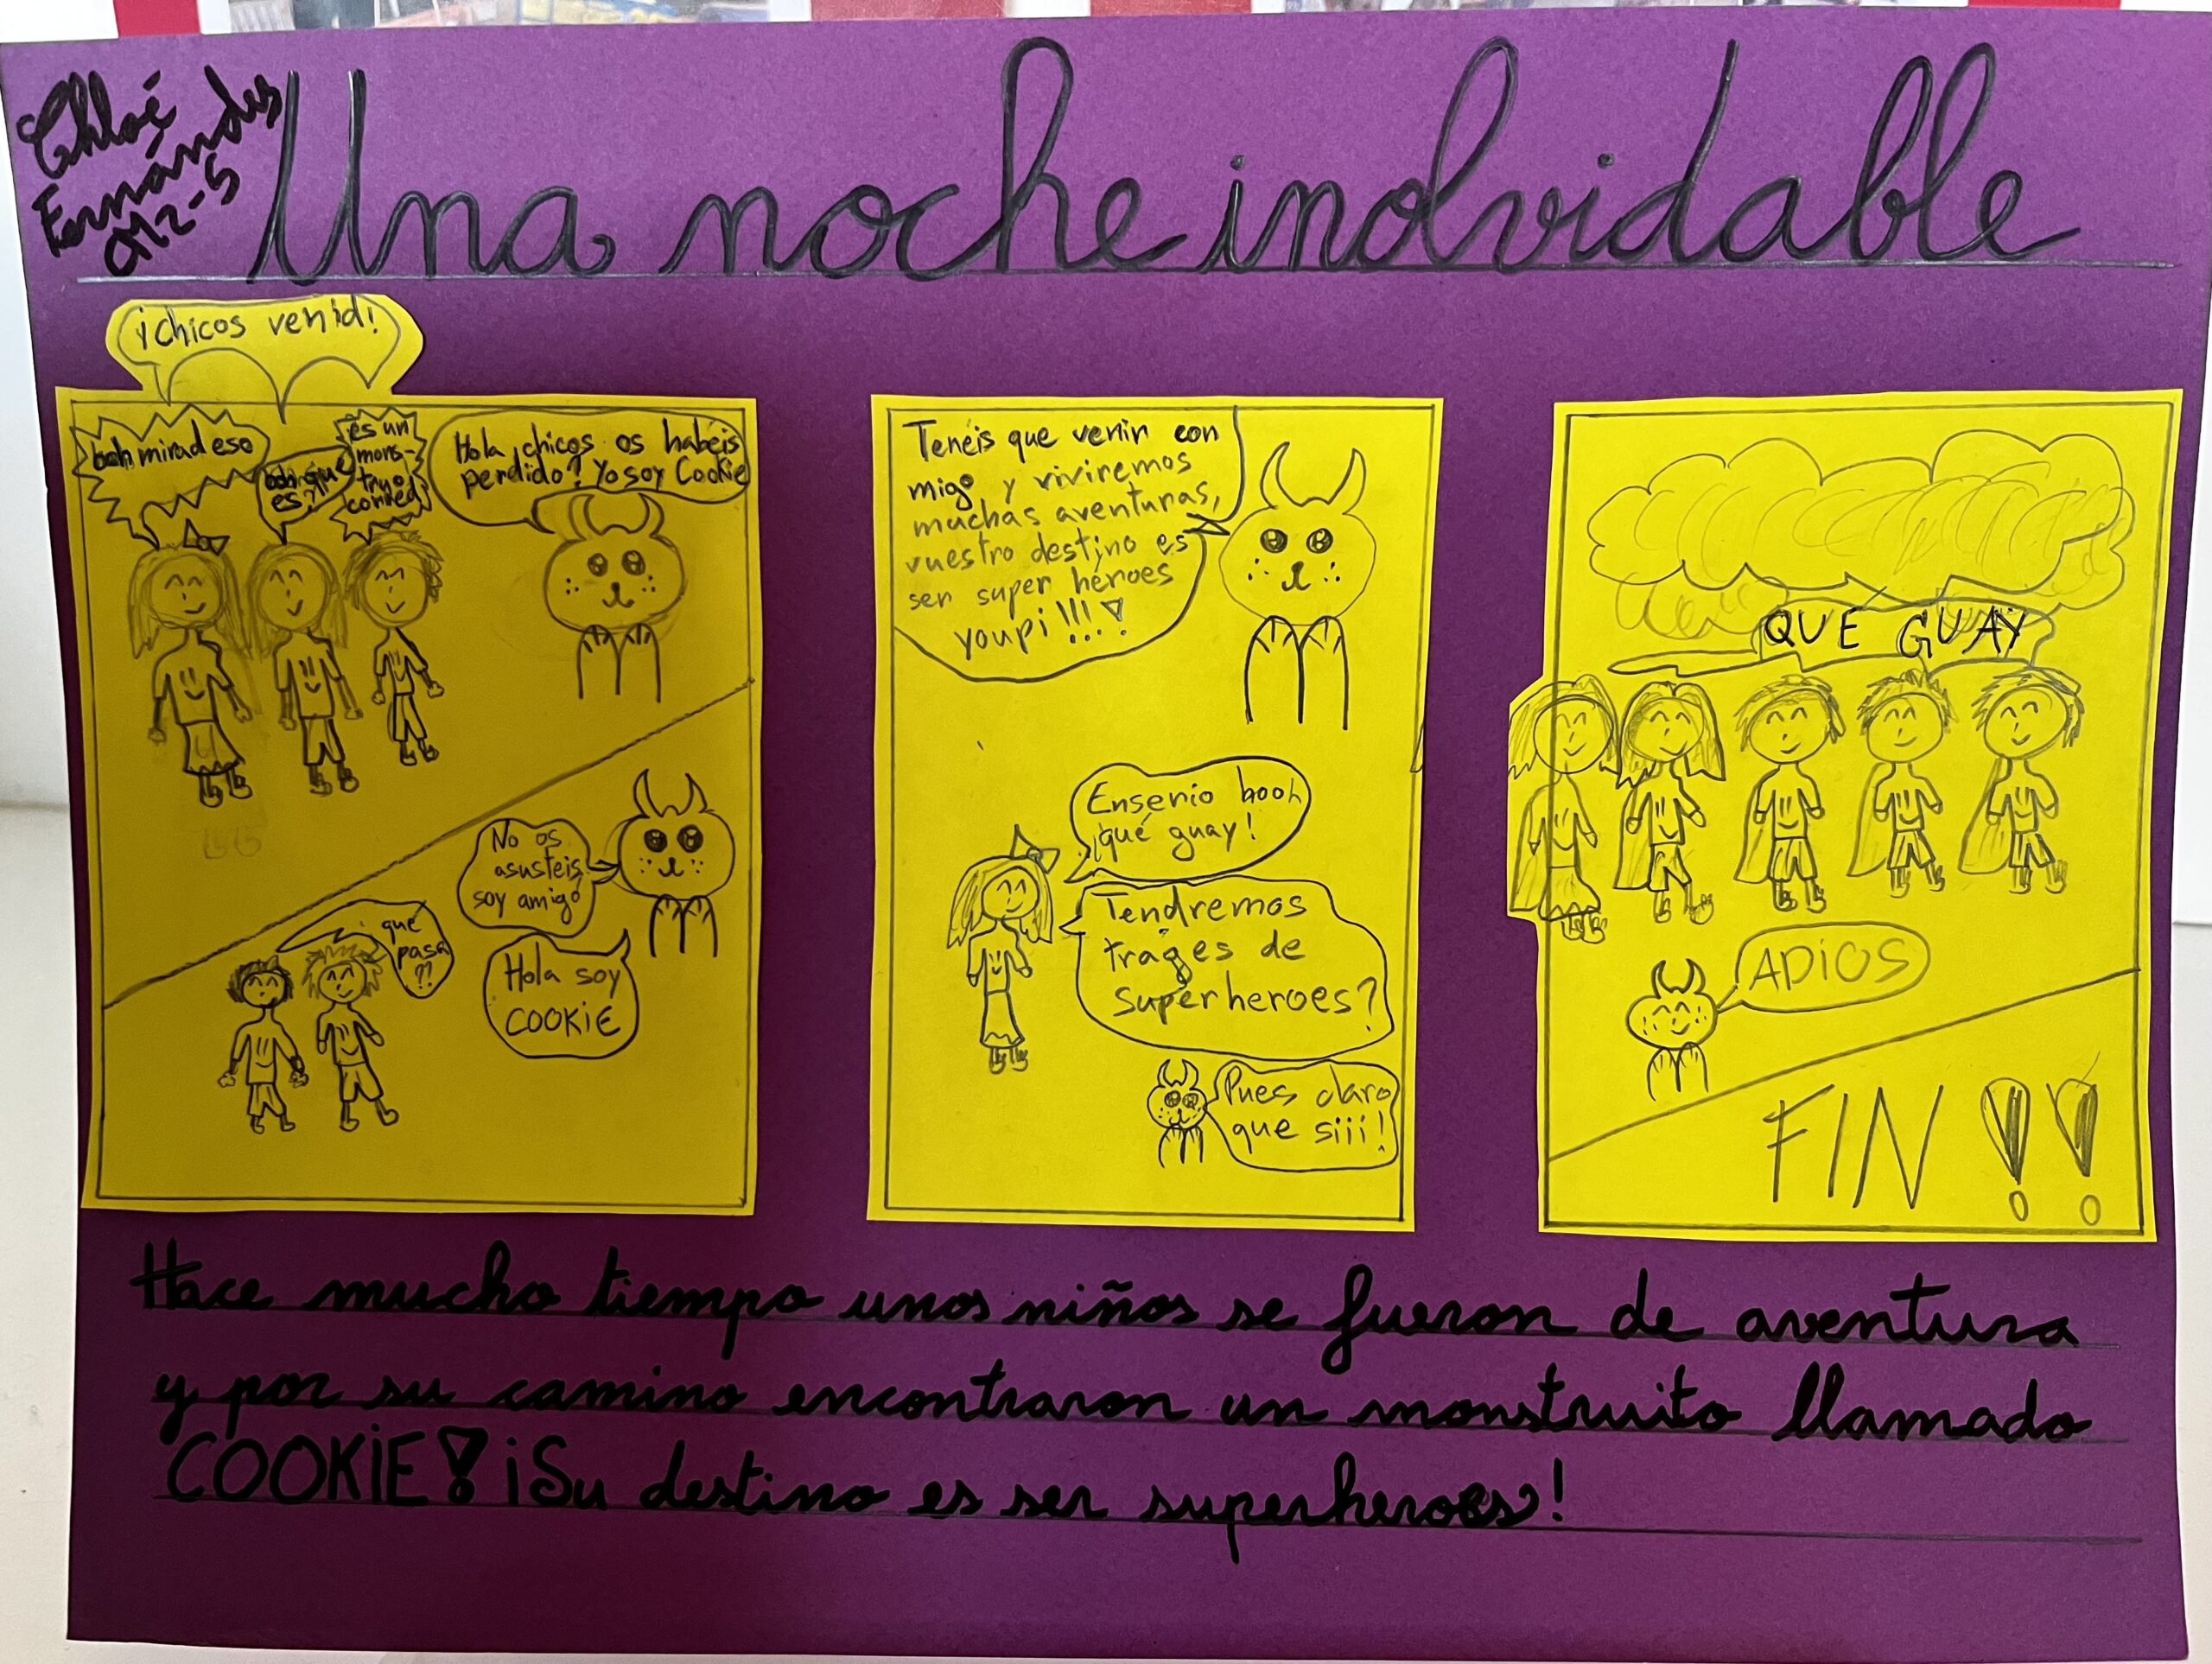 Chloé
Fernándes
CM2-5
Una noche inolvidable
¡chicos venid!
ooh mirad eso
ooh qué
es?
es un
mons-
truo
corred!
Hola chicos os habéis
perdido? Yo soy Cookie
No os
asusteis
soy amigo
¿ qué
pasa
??
Hola soy
COOKiE
Tenéis que venir con
migo, y viviremos
muchas aventuras,
vuestro destino es
ser super héroes
youpi!!!!
Enserio oooh
¡qué guay!
Tendremos
trages de
superheroes?
Pues claro
que siii!
QUÉ GUAY
ADiOS
FIN !!
Hace mucho tiempo unos niños se fueron de aventura
y por su camino encontraron un monstruito llamado
COOKiE! ¡Su destino es ser superheroes!